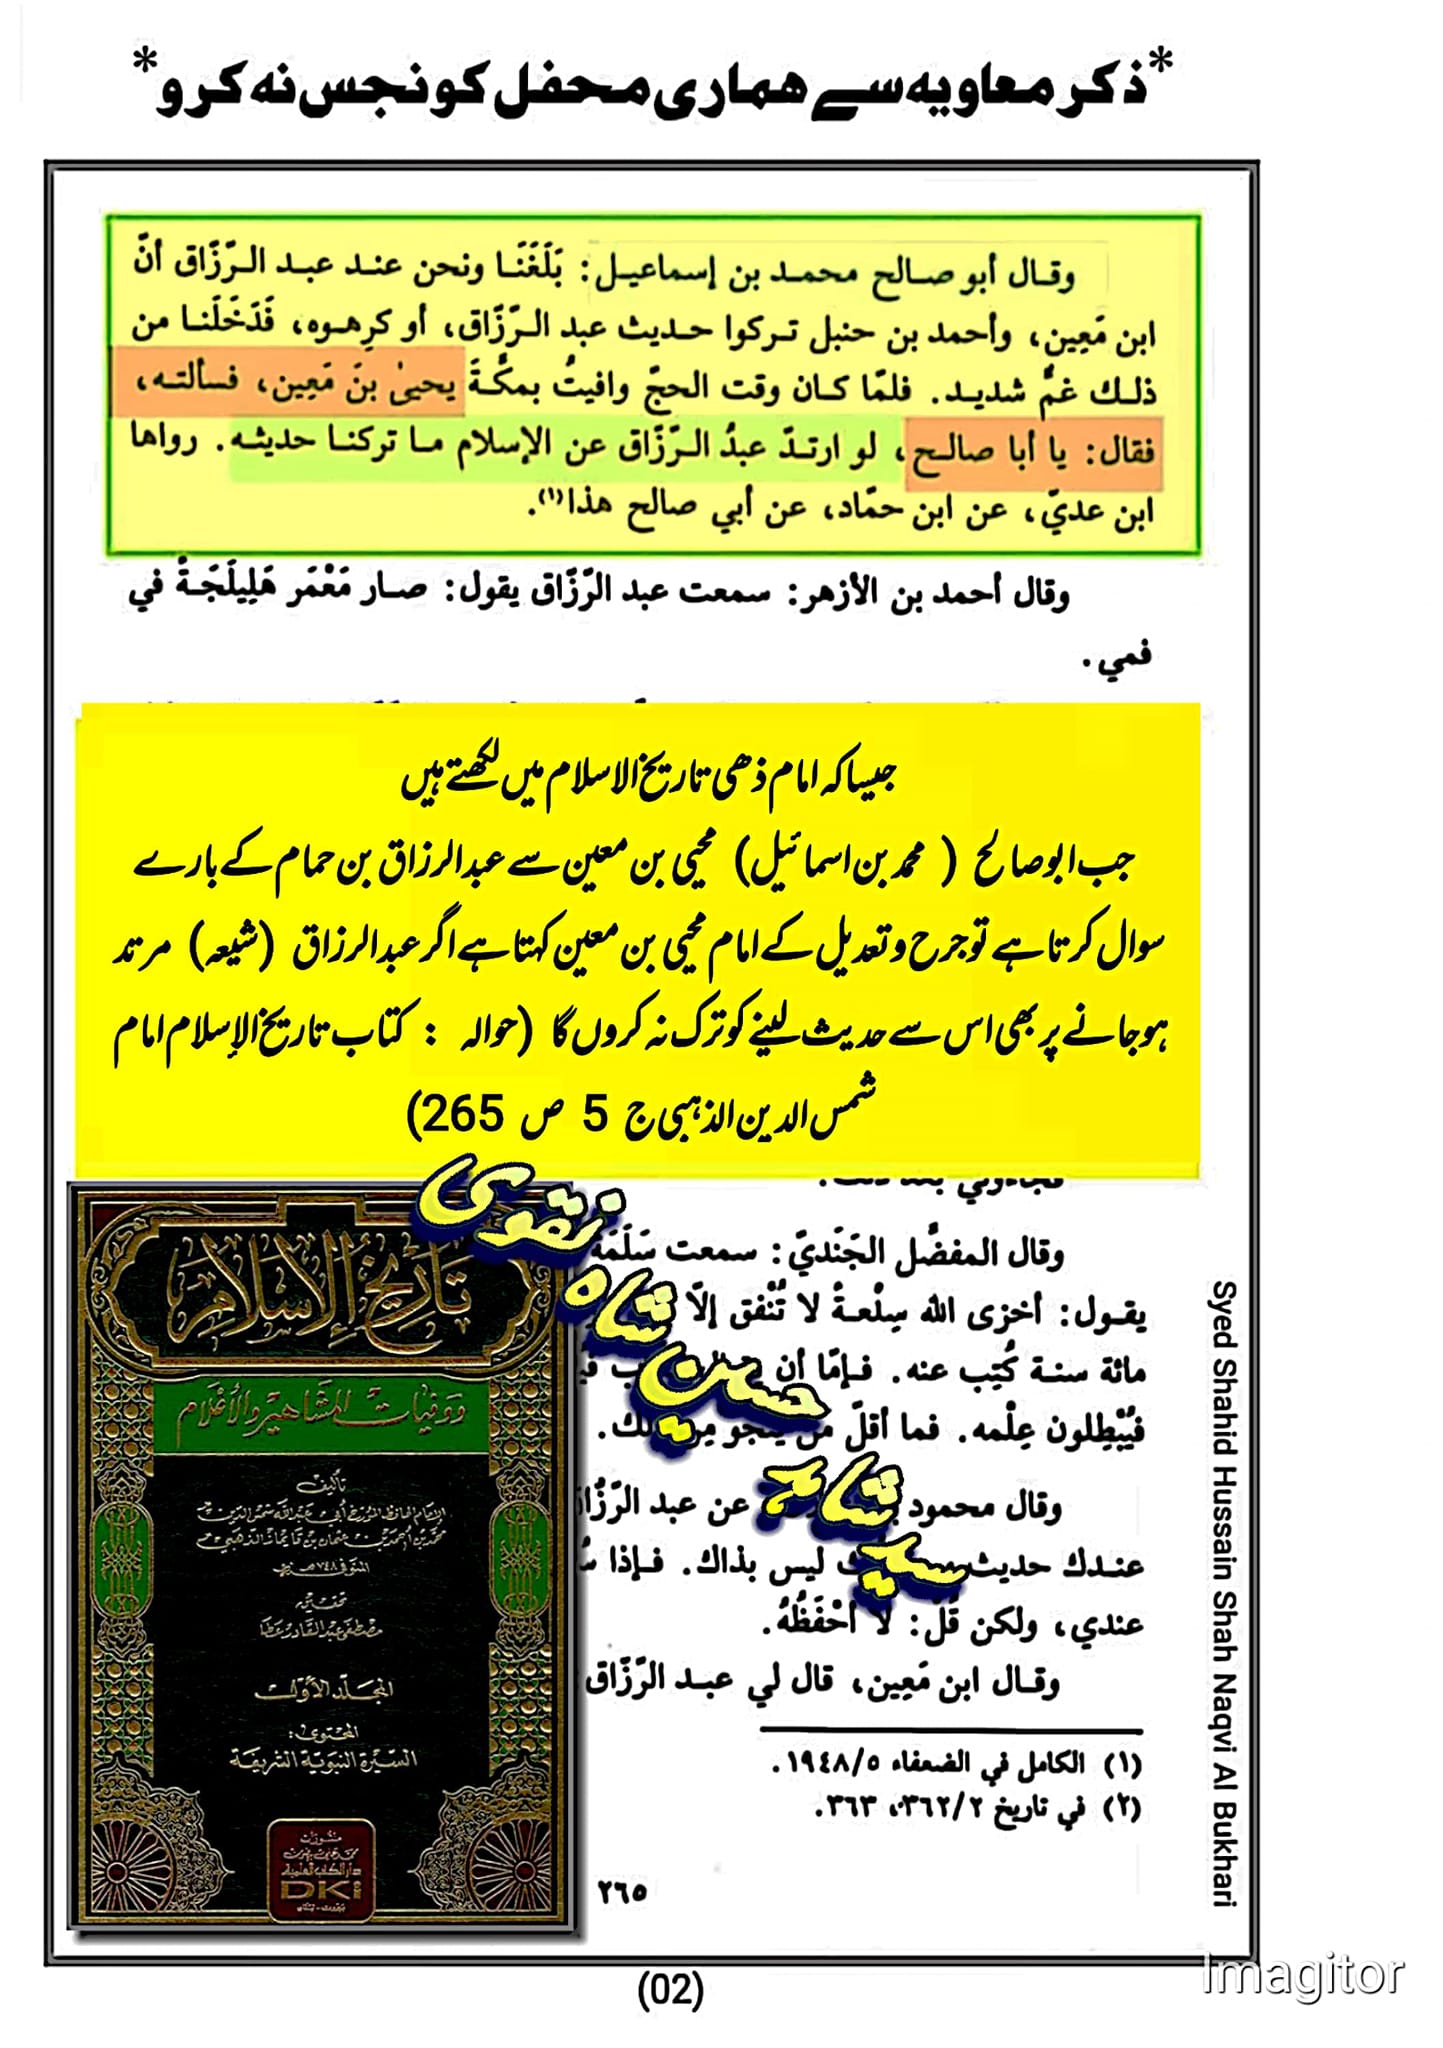 *ذکر معاویہ سے ھماری محفل کو نجس نہ کرو*
وقـال أبو صـالح محمـد بن إسماعيـل: بَلَغَنَا ونحن عنـد عبـد الـرّزّاق أنّ
ابن مَعِين، وأحمد بن حنبل تـركوا حـديث عبد الـرّزّاق، أو كرِهـوه، فَدَخَلَنـا من
ذلـك غمٌّ شديـد. فلمّا كـان وقت الحجّ وافيتُ بمكّـةَ يحيىٰ بنَ مَعِين، فسألتـه،
فقال: يا أبا صالـح، لو ارتـدّ عبدُ الـرّزّاق عن الإسلام مـا تركنـا حديثـه. رواهـا
ابن عديّ، عن ابن حمّاد، عن أبي صالح هذا(١).
وقال أحمد بن الأزهر: سمعت عبد الرّزّاق يقول: صـار مَعْمَر هَلِيلَجَـةً في
فمي.
جیسا کہ امام ذھبی تاریخ الاسلام میں لکھتے ہیں
جب ابو صالح (محمد بن اسمائیل) یحیی بن معین سے عبدالرزاق بن حمام کے بارے
سوال کرتا ہے تو جرح و تعدیل کے امام یحیی بن معین کہتا ہے اگر عبدالرزاق (شیعہ) مرتد
ہو جانے پر بھی اس سے حدیث لینے کو ترک نہ کروں گا (حوالہ : کتاب تاریخ الإسلام امام
شمس الدین الذہبی ج 5 ص 265)
وقال المفضَّل الجَنَديّ: سمعت سَلَمَة
يقـول: أخزى الله سِلْعـةً لا تُنْفق إلّا
مائة سنـة كُتِب عنه. فـإمّا أن
فيُبْطِلون عِلْمه. فما أقلّ من ينجو مِن ذلك.
وقال محمود عن عبد الرّزّاق
عنـدك حديث ليس بذاك. فـإذا
عندي، ولكن قُلْ: لا أَحْفَظُهُ.
وقـال ابن مَعِين، قال لي عبـد الرّزّاق
(١) الكامل في الضعفاء ١٩٤٨/٥.
(٢) في تاريخ ٣٦٢/٢، ٣٦٣.
٢٦٥
سید شاہد حسین شاہ نقوی
تاريخ الإسلام
ووفيات المشاهير والأعلام
تأليف
الإمام الحافظ المؤرخ أبي عبد الله شمس الدين
محمد بن أحمد بن عثمان بن قايماز الذهبي
المتوفى ٧٤٨ هـ
تحقيق
مصطفى عبد القادر عطا
المجلد الأول
المحتوى:
السيرة النبوية الشريفة
منشورات
محمد علي بيضون
دار الكتب العلمية
DKi
بيروت - لبنان
Syed Shahid Hussain Shah Naqvi Al Bukhari
Imagitor
(02)